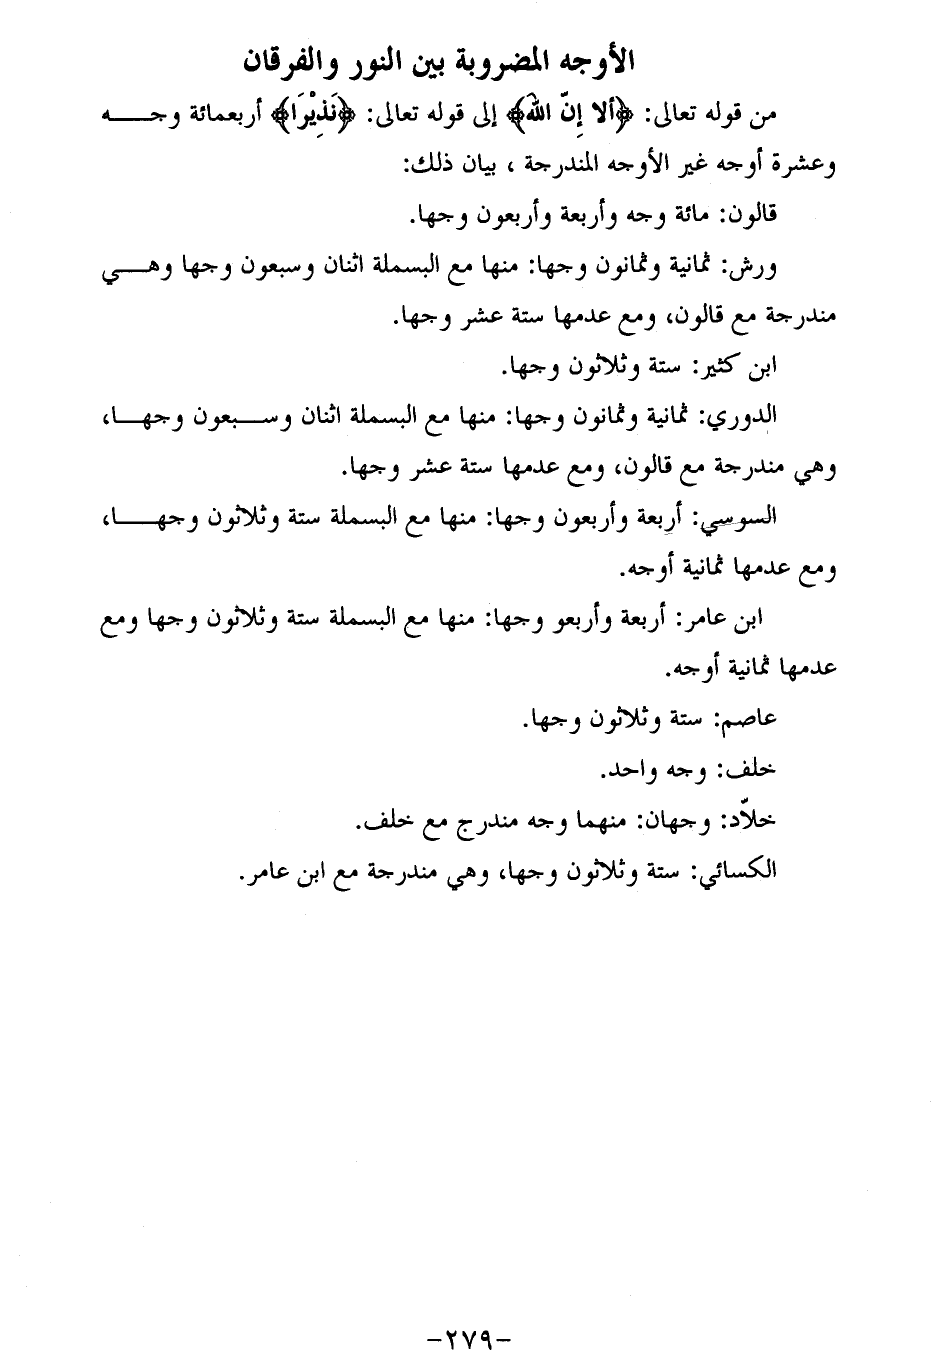 الأوجه المضروبة بين النور والفرقان
من قوله تعالى: ﴿ألا إِنّ اللهَ﴾ إلى قوله تعالى: ﴿نَذِيْرَا﴾ أربعمائة وجـــــه
وعشرة أوجه غير الأوجه المندرجة ، بيان ذلك:
قالون: مائة وجه وأربعة وأربعون وجها.
ورش: ثمانية وثمانون وجها: منها مع البسملة اثنان وسبعون وجها وهـــي
مندرجة مع قالون، ومع عدمها ستة عشر وجها.
ابن كثير: ستة وثلاثون وجها.
الدوري: ثمانية وثمانون وجها: منها مع البسملة اثنان وســـبعون وجهـــا،
وهي مندرجة مع قالون، ومع عدمها ستة عشر وجها.
السوسي: أربعة وأربعون وجها: منها مع البسملة ستة وثلاثون وجهـــــا،
ومع عدمها ثمانية أوجه.
ابن عامر: أربعة وأربعو وجها: منها مع البسملة ستة وثلاثون وجها ومع
عدمها ثمانية أوجه.
عاصم: ستة وثلاثون وجها.
خلف: وجه واحد.
خلاّد: وجهان: منهما وجه مندرج مع خلف.
الكسائي: ستة وثلاثون وجها، وهي مندرجة مع ابن عامر.
-٢٧٩-